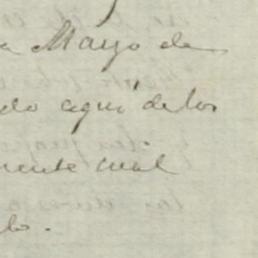 a Mayo de
do aqui de los
mente cual
lo.